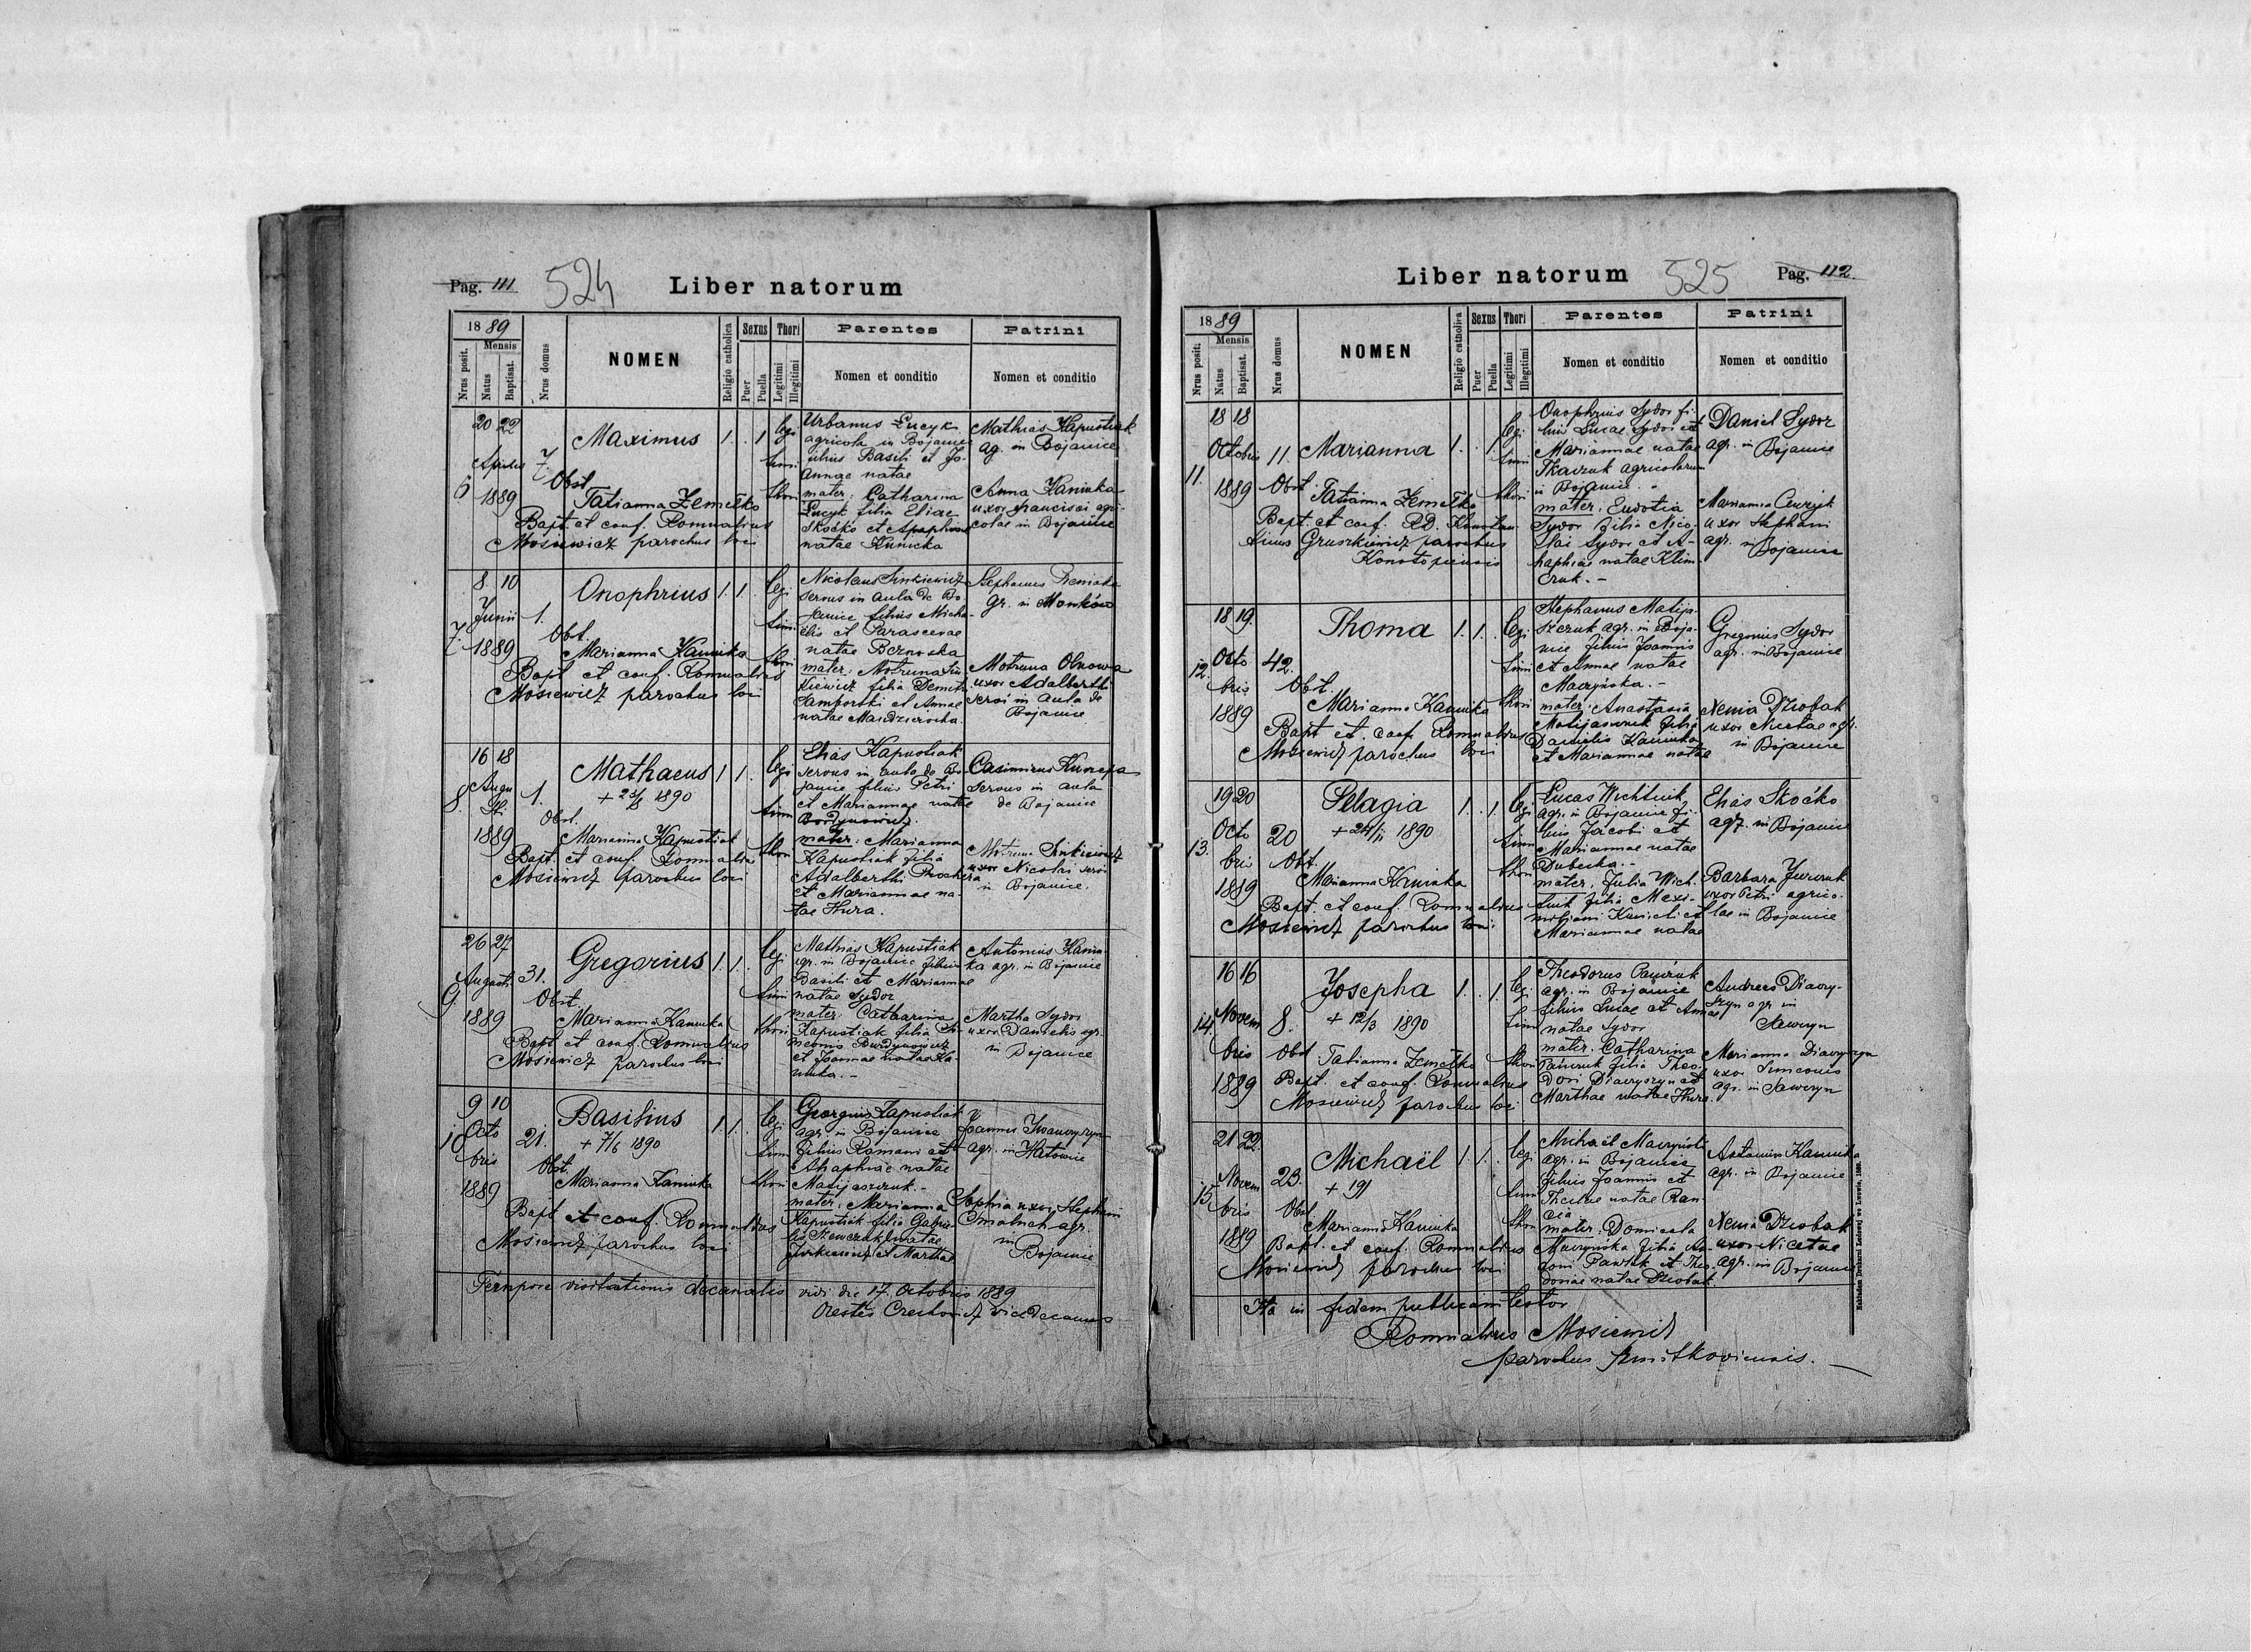 Pag. 111
524
Liber natorum
1889
Mensis
Nrus posit.
Natus
Baptisat.
Nrus domus
NOMEN
Religio catholica
Sexus
Puer
Puella
Thori
Legitimi
Illegitimi
Parentes
Nomen et conditio
Patrini
Nomen et conditio
6
20 22
Aprilis
1889
7.
Maximus
1. . 1
legi
timi
thori
Obst.
Tatianna Zemełko
Bapt. et conf. Romualdus
Mosiewicz parochus loci
Urbanus Łucyk
agricola in Bojanice
filius Basili et Jo-
annae natae
mater: Catharina
Łucyk filia Eliae
Skoćko et Agaphiae
natae Kunicka
Mathias Kapustiak
ag. in Bojanice
Anna Kaminka
uxor Francisci agri-
colae in Bojanice
7.
8. 10
Junii
1889
1.
Onophrius
1. 1.
legi
timi
thori
Obst.
Marianna Kaminka
Bapt. et conf. Romualdus
Mosiewicz parochus loci
Nicolaus Sinkiewicz
servus in aula de Bo-
janice filius Micha-
elis et Parascevae
natae
mater: Motruna Sin-
kiewicz filia Demetri
et Annae
natae
Stephanus
gr. in
Motruna
uxor Adalberthi
servi in aula de
Bojanice
8.
16 18
Augu
sti
1889
1.
Mathaeus
1 1.
legi
timi
thori
Obst.
Marianna Kapustiak
Bapt. et conf. Romualdus
Mosiewicz parochus loci
Elias Kapustiak
servus in aula de Bo-
janice filius Petri
et Mariannae natae
Bordynowicz.
mater: Marianna
Kapustiak filia
Adalberthi
et Mariannae na-
tae Hura.
Casimirus
servus in aula
de Bojanice
Motruna Sinkiewicz
uxor Nicolai servi
in Bojanice.
9.
26 27
Augusti
1889
31.
Gregorius
1. 1.
legi
timi
thori
Obst.
Marianna Kaminka
Bapt. et conf. Romualdus
Mosiewicz parochus loci
Mathias Kapustiak
agr. in Bojanice filius
Basili et Mariannae
natae Sydor
mater: Catharina
Kapustiak filia Si-
meonis Burdynowicz
et Joannae natae Ka-
minka. -
Antonius Kamin-
ka agr. in Bojanice
Martha Sydor
uxor Danielis agr.
in Bojanice
10
9 10
Octo
bris
1889
21.
Basilius
+ 7/6 1890
1. 1.
legi
timi
thori
Obst.
Marianna Kaminka
Bapt et conf. Romualdus
Mosiewicz parochus loci
Georgius Kapustiak
agr. in Bojanice
filius Romani et
Ahaphiae natae
Matijaszczuk. -
mater: Marianna
Kapustiak filia Gabrie-
lis Szewczuk
et Martha
Joannes Iwanczyszyn
agr. in
Sophia uxor Stephani
agr.
in
Bojanice
Tempore visitationis decanalis vidi die 17. Octobris 1889
Orestes vicedecanus
Liber natorum
525
Pag. 112.
1889
Mensis
Nrus posit.
Natus
Baptisat.
Nrus domus
NOMEN
Religio catholica
Sexus
Puer
Puella
Thori
Legitimi
Illegitimi
Parentes
Nomen et conditio
Patrini
Nomen et conditio
11.
18 18
Octobris
1889
11.
Marianna
1. . 1.
legi
timi
thori
Obst.
Tatianna Zemełko
Bapt. et conf. RD. Konstan-
tinus Gruszkiewicz parochus
Konotopiensis
Onophrius Sydor fi-
lius Lucae Sydor et
Mariannae natae
Tkaczuk agricolarum
in Bojanice. -
mater: Eudotia
Sydor filia Nico-
lai Sydor et A-
haphiae natae Klim-
czuk. -
Daniel Sydor
agr. in Bojanice
Marianna
uxor Stephani
agr. in Bojanice
12.
18 19.
Octo
bris
1889
42.
Thoma
1. 1.
legi
timi
thori
Obst.
Marianna Kaminka
Bapt et. conf Romualdus
Mosiewicz parochus loci
Stephanus Matija-
szczuk agr. in Boja-
nice filius Joannis
et Annae natae
Maczyńska. -
mater: Anastasia
Matijaszczuk filia
Danielis Kaminka
et Mariannae natae
Gregorius Sydor
agr. in Bojanice
Xenia Dziobak
uxor Nicetae agr.
in Bojanice
13.
19 20
Octo
bris
1889
20
Pelagia
+ 24/11 1890
1. . 1.
legi
timi
thori
Obst.
Marianna Kaminka
Bapt. et conf. Romualdus
Mosiewicz parochus loci
Lucas Wichtiuk
agr. in Bojanice fi-
lius Jacobi et
Mariannae natae
Dubecka. -
mater: Julia Wich-
tiuk filia Maxi-
miliani Kunicki et
Mariannae natae
Elias Skoćko
agr. in Bojanice
Barbara Jurczuk
uxor Petri agrico-
lae in Bojanice
14.
16 16
Novem
bris
1889
8.
Josepha
+ 12/3 1890
1. . 1.
legi
timi
thori
Obst Tatianna Zemełko
Bapt. et conf. Romualdus
Mosiewicz parochus loci
Theodorus Pańczuk
agr. in Bojanice
filius Lucae et Annae
natae Sydor
mater: Catharina
Pańczuk filia Theo-
dori Diaczyszyn et
Marthae natae Hura.
Andreas Diaczy-
szyn agr in
Saweryn
Marianna Diaczyszyn
uxor Simeonis
agr. in Saweryn
15.
21 22
Novem
bris
1889
23.
Michaël
1. 1.
legi
timi
thori
Obst
Marianna Kaminka
Bapt. et conf. Romualdus
Mosiewicz parochus loci
Michaël Maczyński
agr. in Bojanice
filius Joannis et
Theclae natae
mater: Domicela
Maczyńska filia An-
tonii Pawluk et Theo-
dosiae natae Dziobak
Antonius Kaminka
agr. in Bojanice
Xenia Dziobak
uxor Nicetae
agr. in Bojanice
Ita in fidem publicam testor
Romualdus Mosiewicz
parochus
Nakładem Drukarni Ludowej we Lwowie, 1880.